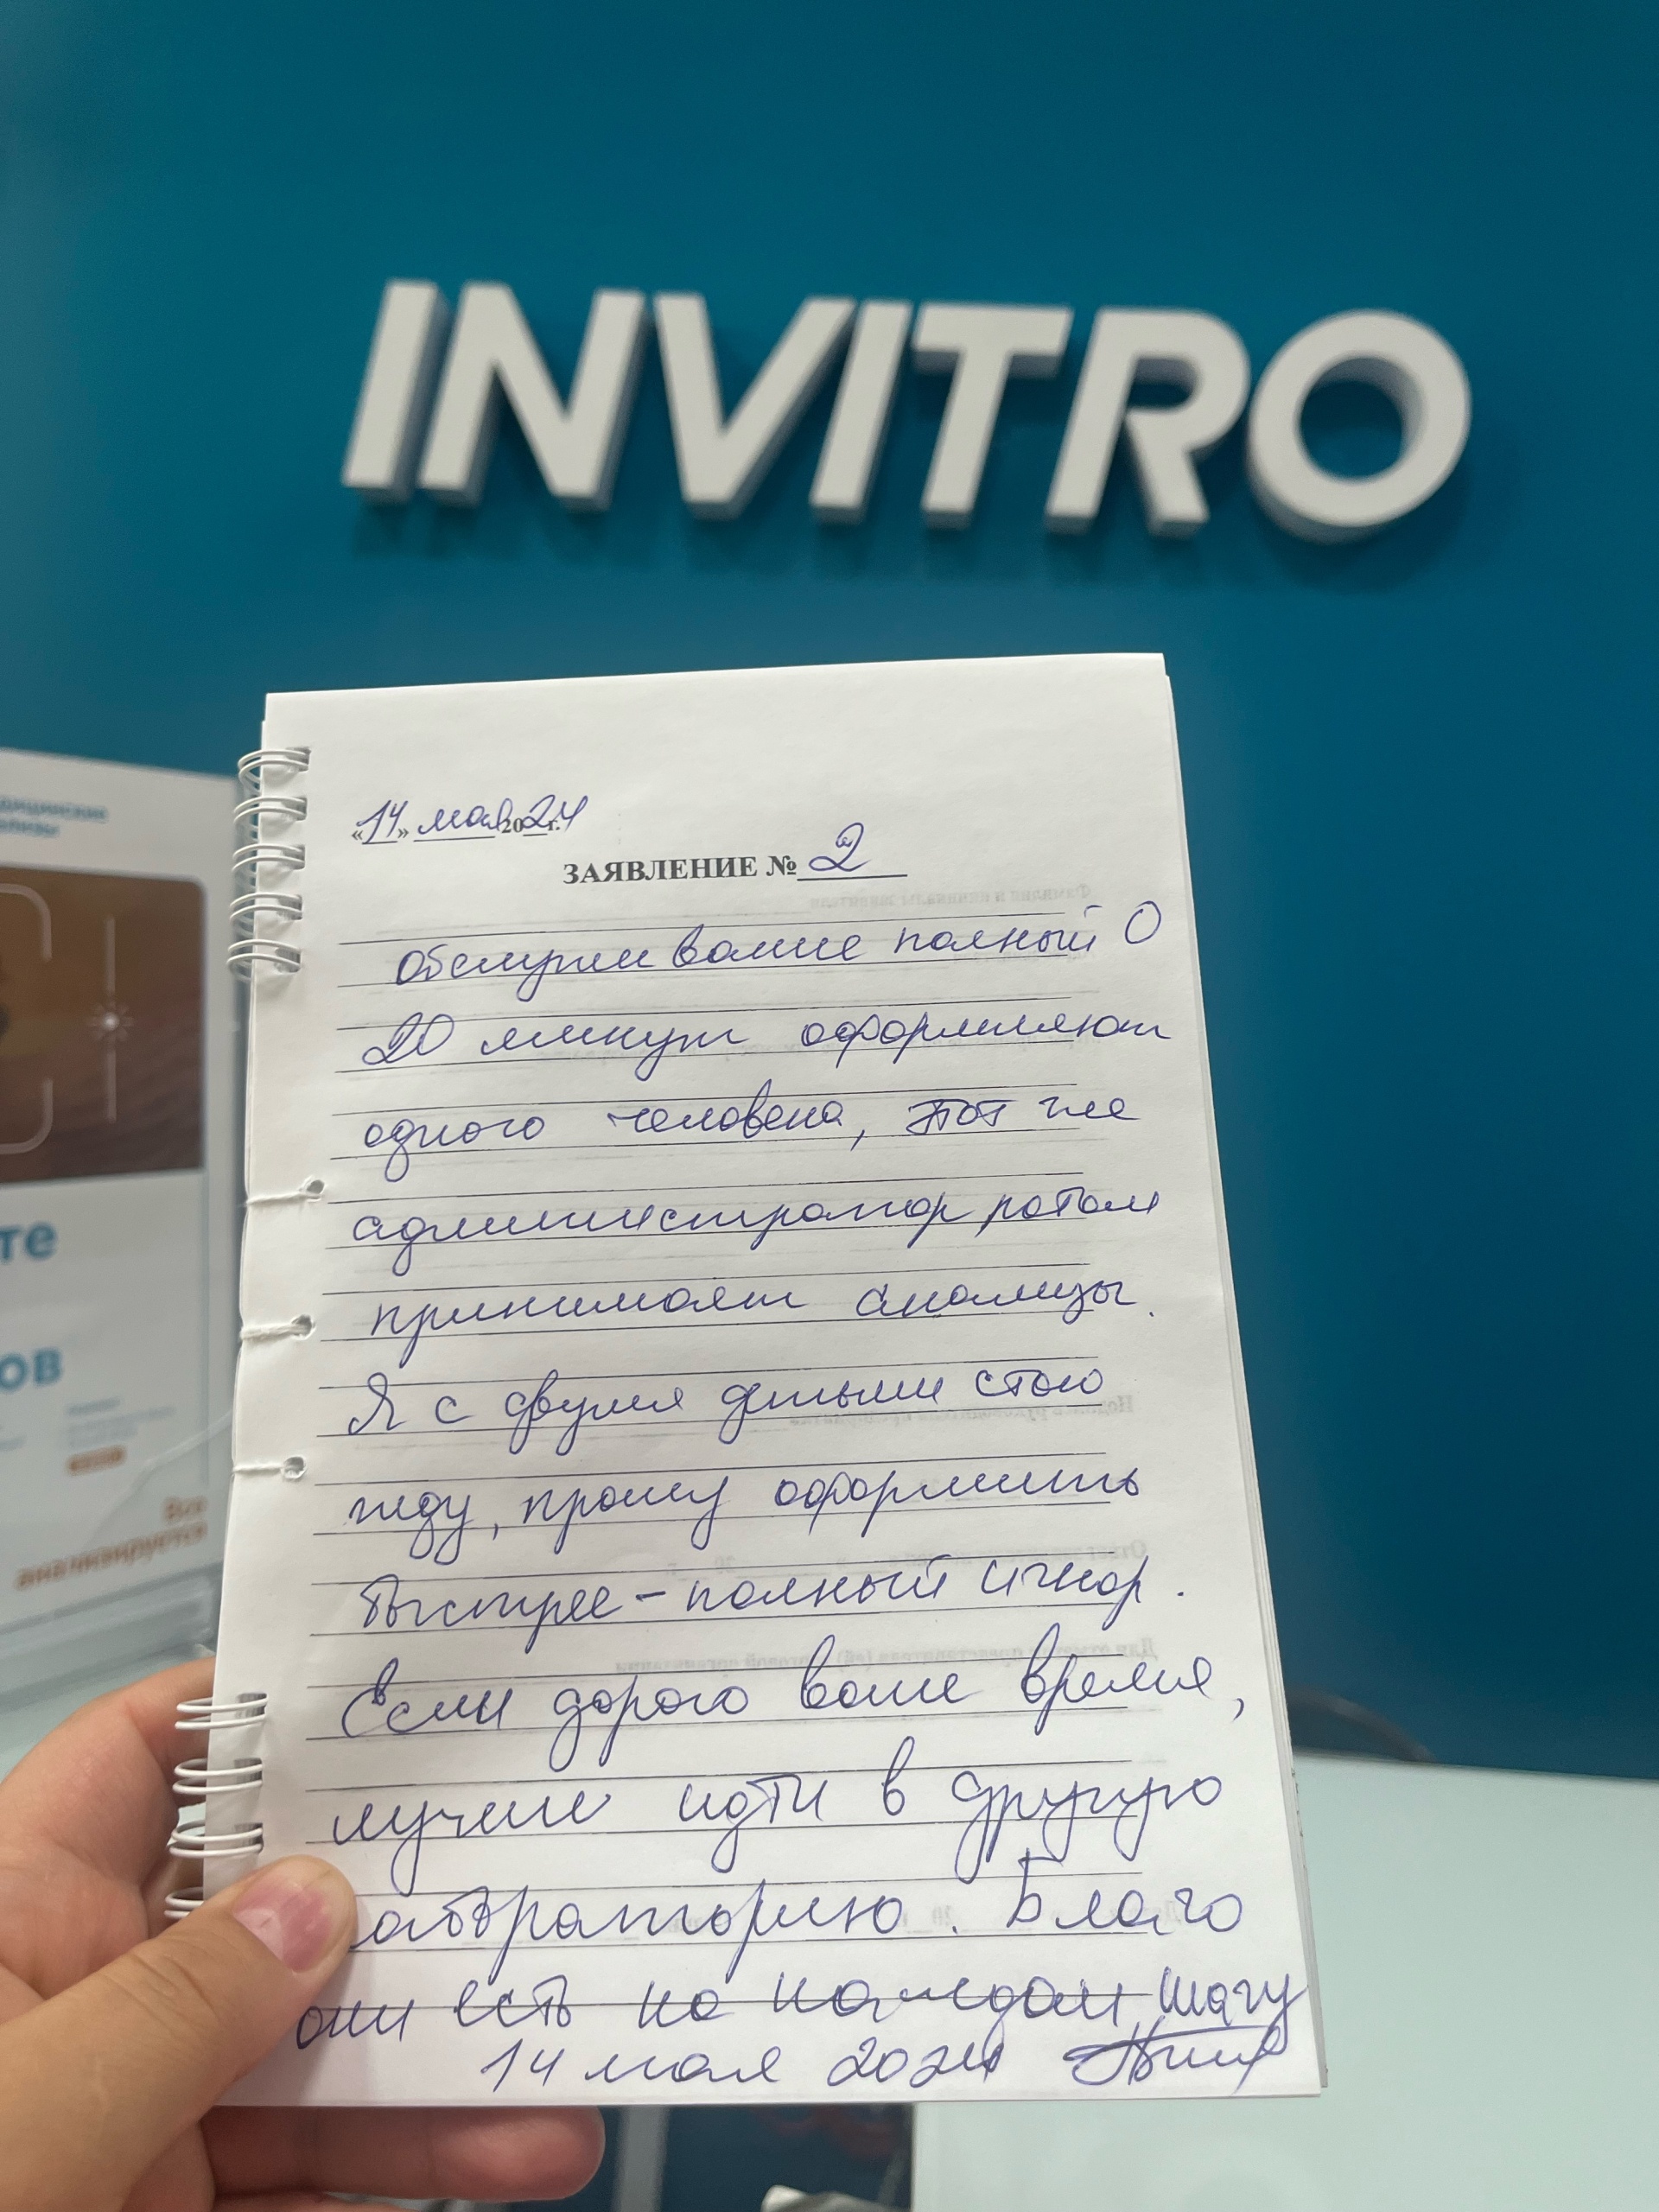 INVITRO
дицинские
ализы
те
ов
Все
анализируется
«14» мая 2024г.
ЗАЯВЛЕНИЕ № 2
обслуживание полный 0
20 минут оформляют
одного человека, этот же
администратор потом
принимает анализы.
Я с двумя детьми стою
жду, прошу оформить
быстрее – полный игнор.
Если дорого ваше время,
лучше идти в другую
лабораторию. Благо
они есть на каждом шагу
14 мая 2024